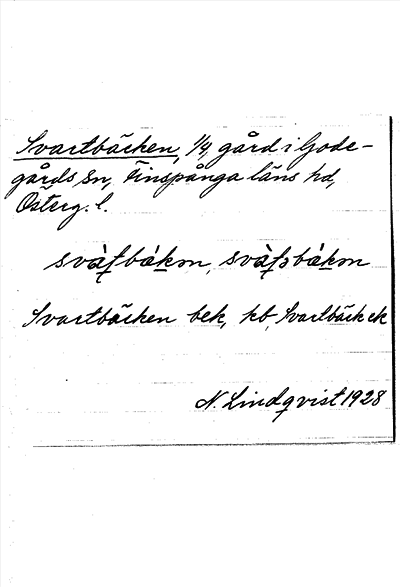 Svartbäcken, 1/4, gård i Gode-
gårds sn, Finspånga läns hd,
Österg. l.
Svartbäcken bek, kb, Svartbäck ek
N. Lindqvist 1928